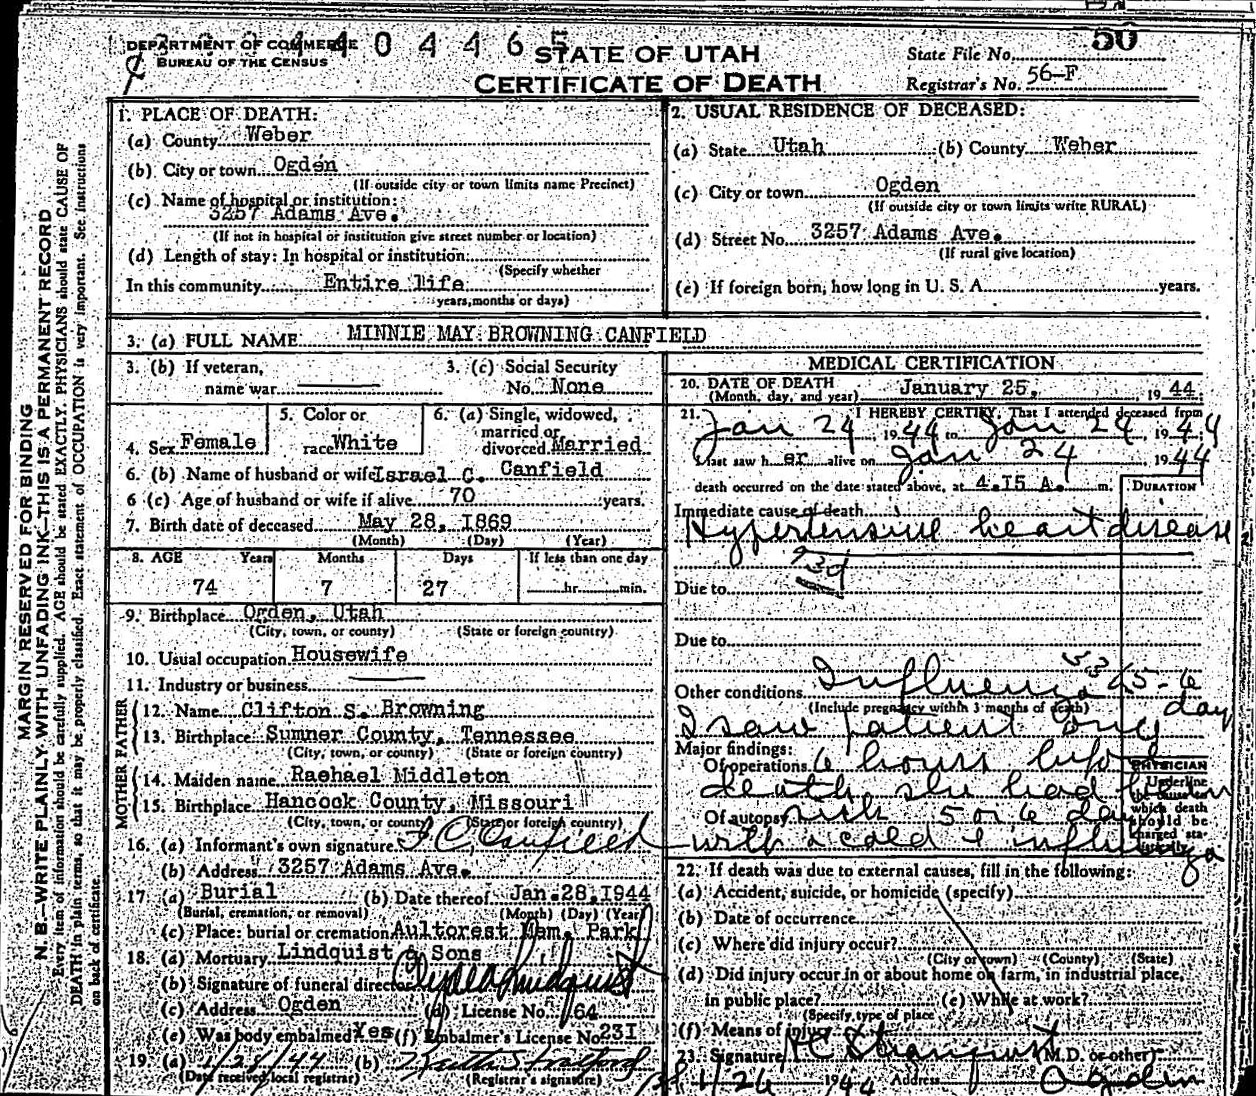 DEPARTMENT OF COMMERCE
BUREAU OF THE CENSUS
4 0 4 4 6 5
STATE OF UTAH
CERTIFICATE OF DEATH
State File No. 50
Registrar's No. 56-F
MARGIN RESERVED FOR BINDING
N. B.—WRITE PLAINLY WITH UNFADING INK—THIS IS A PERMANENT RECORD
Every item of information should be carefully supplied. AGE should be stated EXACTLY. PHYSICIANS should state CAUSE OF
DEATH in plain terms, so that it may be properly classified. Exact statement of OCCUPATION is very important. See instructions
on back of certificate.
1. PLACE OF DEATH:
(a) County Weber
(b) City or town Ogden
(If outside city or town limits name Precinct)
(c) Name of hospital or institution:
3257 Adams Ave.
(If not in hospital or institution give street number or location)
(d) Length of stay: In hospital or institution:
(Specify whether
In this community Entire life
years, months or days)
2. USUAL RESIDENCE OF DECEASED:
(a) State Utah (b) County Weber
(c) City or town Ogden
(If outside city or town limits write RURAL)
(d) Street No. 3257 Adams Ave.
(If rural give location)
(e) If foreign born, how long in U. S. A. years.
3. (a) FULL NAME MINNIE MAY BROWNING CANFIELD
3. (b) If veteran,
name war
3. (c) Social Security
No. None
4. Sex Female
5. Color or
race White
6. (a) Single, widowed,
married or
divorced Married
6. (b) Name of husband or wife Israel C. Canfield
6 (c) Age of husband or wife if alive 70 years.
7. Birth date of deceased May 28, 1869
(Month) (Day) (Year)
8. AGE Years Months Days If less than one day
74 7 27 hr. min.
9. Birthplace Ogden, Utah
(City, town, or county) (State or foreign country)
10. Usual occupation Housewife
11. Industry or business
FATHER
12. Name Clifton S. Browning
13. Birthplace Sumner County, Tennessee
(City, town, or county) (State or foreign country)
MOTHER
14. Maiden name Raehael Middleton
15. Birthplace Hancock County, Missouri
(City, town, or county) (State or foreign country)
16. (a) Informant's own signature I C Canfield
(b) Address 3257 Adams Ave.
17 (a) Burial (b) Date thereof Jan. 28, 1944
(Burial, cremation, or removal) (Month) (Day) (Year)
(c) Place: burial or cremation Aultorest Mem. Park
18. (a) Mortuary Lindquist & Sons
(b) Signature of funeral director Clyde Lindquist
(c) Address Ogden (d) License No. 64
(e) Was body embalmed Yes (f) Embalmer's License No. 231
19 (a) 1/28/44 (b)
(Date received local registrar) (Registrar's signature)
MEDICAL CERTIFICATION
20. DATE OF DEATH
(Month, day, and year) January 25, 1944
21. I HEREBY CERTIFY, That I attended deceased from
Jan 24 1944 to Jan 24, 1944
I last saw her alive on Jan 24 1944
death occurred on the date stated above, at 4.15 A. m.
DURATION
Immediate cause of death
Hypertensive heart disease
93d
Due to
Due to
33
Other conditions Influenza 5-6 day
(Include pregnancy within 3 months of death)
I saw patient only
Major findings:
Of operations 6 hours before
death she had been
Of autopsy sick 5 or 6 days
with a cold & influenza
PHYSICIAN
Underline
the cause to
which death
should be
charged sta-
tistically.
22. If death was due to external causes, fill in the following:
(a) Accident, suicide, or homicide (specify)
(b) Date of occurrence
(c) Where did injury occur?
(City or town) (County) (State)
(d) Did injury occur in or about home on farm, in industrial place,
in public place? (e) While at work?
(Specify type of place
(f) Means of injury
23. Signature H C Stranquist (M.D. or other)
1/26 1944 Address Ogden